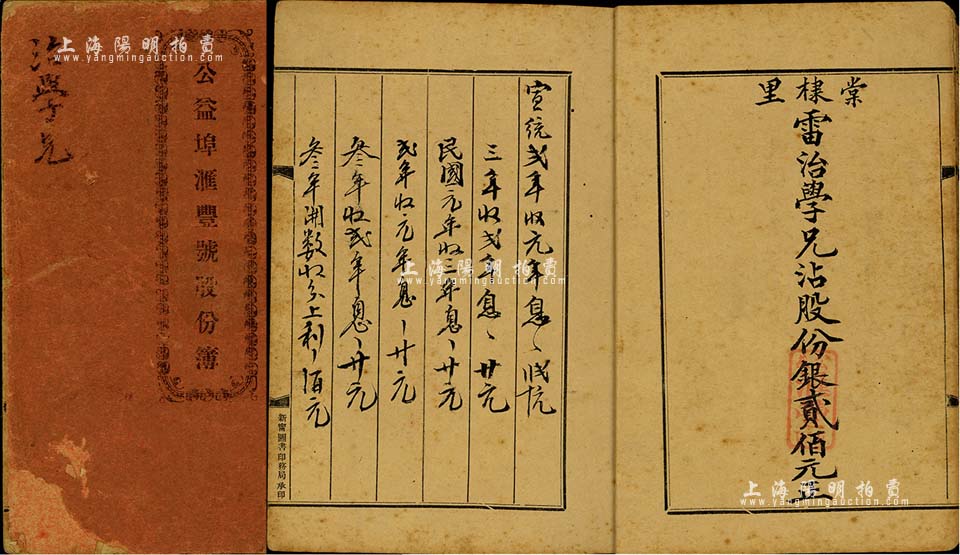 公益埠滙豐號股份簿
治學兄
棠棣里
雷治學兄沾股份銀貳佰元正
宣統弍年收元年息
三年收弍年息廿元
民國元年收三年息廿元
弍年收元年息廿元
叁年收弍年息廿元
叁年開数收分上利佰元
新甯圖書印務局承印
上海陽明拍賣
www.yangmingauction.com
上海陽明拍賣
www.yangmingauction.com
上海陽明拍賣
www.yangmingauction.com